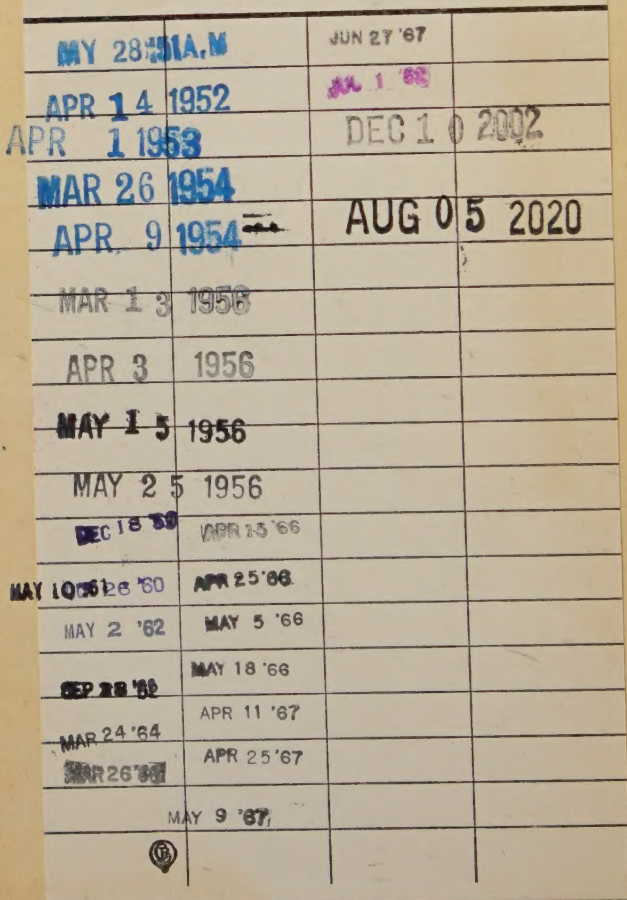 MY 28 '51 A.M
APR 14 1952
APR 1 1953
MAR 26 1954
APR. 9 1954
MAR 13 1956
APR 3 1956
MAY 15 1956
MAY 25 1956
DEC 18 '59
MAY 10 '61 26 '60
MAY 2 '62
SEP 28
MAR 24 '64
MAR 26
APR 13 '66
APR 25 '66
MAY 5 '66
MAY 18 '66
APR 11 '67
APR 25 '67
MAY 9 '67
JUN 27 '67
JUL 1 '68
DEC 10 2002
AUG 05 2020